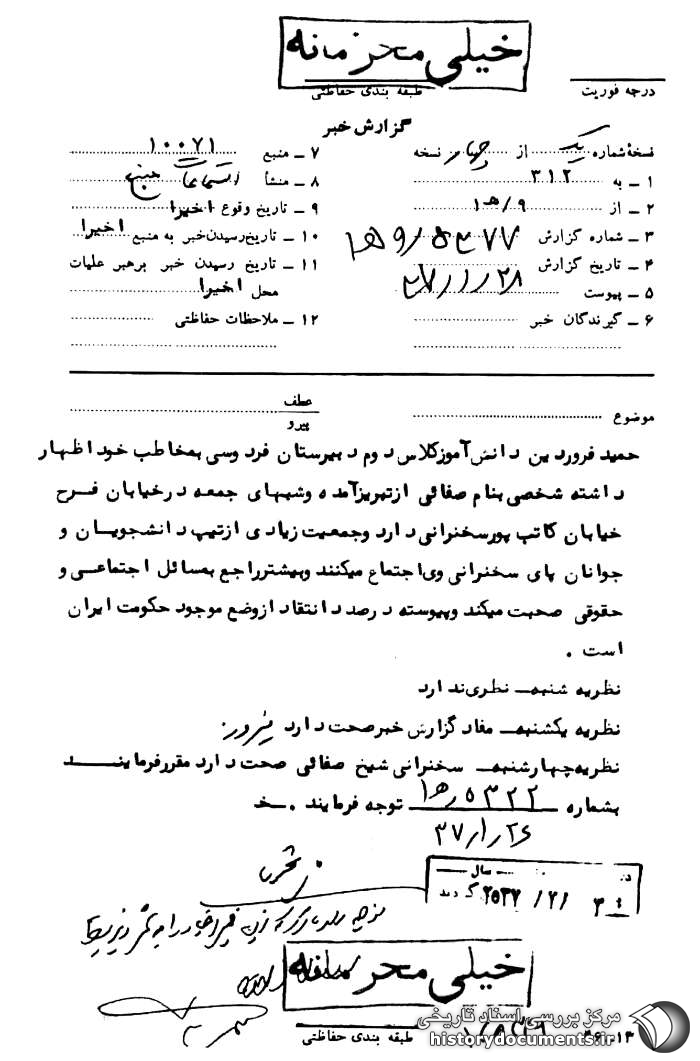 خیلی محرمانه
درجه فوریت
طبقه بندی حفاظتی
گزارش خبر
نسخهٔ شماره یک از چهار نسخه
۱ ـ به ۳۱۲
۲ ـ از ۹/ه۱
۳ ـ شماره گزارش ۵۳۷۷/۹ه۱
۴ ـ تاریخ گزارش ۳۷/۱/۲۸
۵ ـ پیوست
۶ ـ گیرندگان خبر
۷ ـ منبع ۱۰۰۷۱
۸ ـ منشأ
۹ ـ تاریخ وقوع اخیرا
۱۰ ـ تاریخ رسیدن خبر به منبع اخیرا
۱۱ ـ تاریخ رسیدن خبر برهبر علمیات
محل اخیرا
۱۲ ـ ملاحظات حفاظتی
موضوع
عطف
پیرو
حمید فروردین دانش آموز کلاس دوم دبیرستان فردوسی به مخاطب خود اظهار
داشته شخصی بنام صفائی از تبریز آمده و شبهای جمعه در خیابان فرح
خیابان کاتب پور سخنرانی دارد و جمعیت زیادی از تیپ دانشجویان و
جوانان پای سخنرانی وی اجتماع میکنند و بیشتر راجع به مسائل اجتماعی و
حقوقی صحبت میکند و پیوسته درصدد انتقاد از وضع موجود حکومت ایران
است .
نظریه شنبه ـ نظری ندارد
نظریه یکشنبه ـ مفاد گزارش خبر صحت دارد
نظریه چهارشنبه ـ سخنرانی شیخ صفائی صحت دارد مقرر فرمایند
بشماره ۵۳۲۲/ه۱ توجه فرمایند .
۳۷/۱/۲۶
سال
۲۵۳۷/۲/
خیلی محرمانه
طبقه بندی حفاظتی
مرکز بررسی اسناد تاریخی
historydocuments.ir